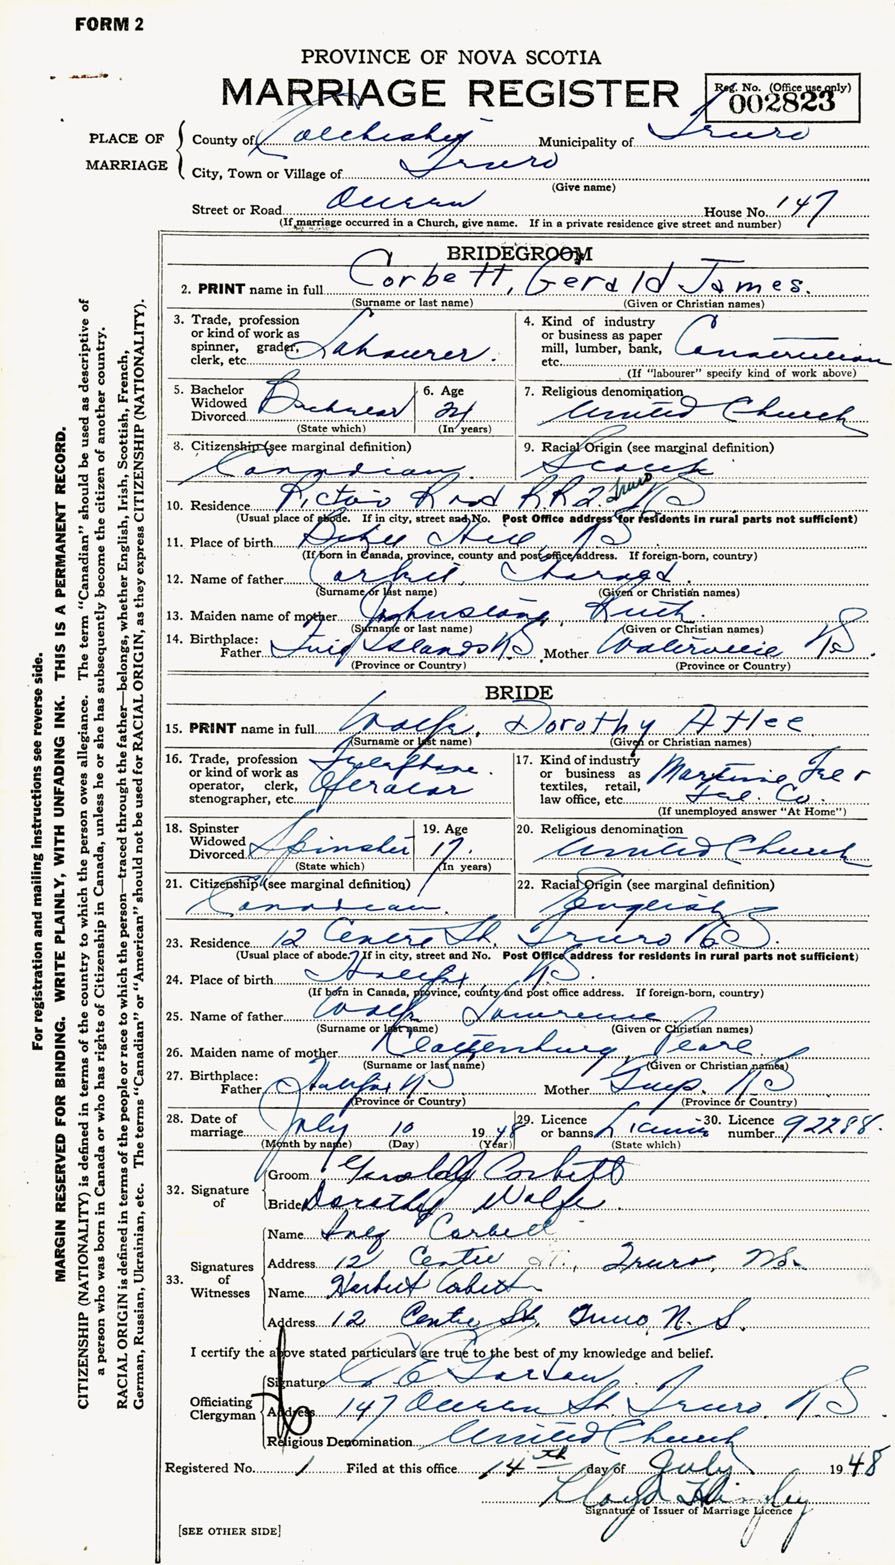 FORM 2
PROVINCE OF NOVA SCOTIA
MARRIAGE REGISTER
Reg. No. (Office use only)
002823
PLACE OF MARRIAGE
County of Colchester Municipality of Truro
City, Town or Village of Truro
(Give name)
Street or Road Queen House No. 147
(If marriage occurred in a Church, give name. If in a private residence give street and number)
BRIDEGROOM
2. PRINT name in full Corbett, Gerald James.
(Surname or last name) (Given or Christian names)
3. Trade, profession or kind of work as spinner, grader, clerk, etc. Labourer.
4. Kind of industry or business as paper mill, lumber, bank, etc. Construction
(If "labourer" specify kind of work above)
5. Bachelor Widowed Divorced Bachelor
(State which)
6. Age 24
(In years)
7. Religious denomination United Church
8. Citizenship (see marginal definition) Canadian
9. Racial Origin (see marginal definition) Scotch
10. Residence Pictou Road R.R.2. Truro NS
(Usual place of abode. If in city, street and No. Post Office address for residents in rural parts not sufficient)
11. Place of birth Hill, NS
(If born in Canada, province, county and post office address. If foreign-born, country)
12. Name of father Corbett, Charles.
(Surname or last name) (Given or Christian names)
13. Maiden name of mother Johnstone, Ruth.
(Surname or last name) (Given or Christian names)
14. Birthplace: Father Five Islands NS, Mother Waterville NS
(Province or Country) (Province or Country)
BRIDE
15. PRINT name in full Wolfe, Dorothy Atlee
(Surname or last name) (Given or Christian names)
16. Trade, profession or kind of work as operator, clerk, stenographer, etc. Telephone Operator
17. Kind of industry or business as textiles, retail, law office, etc. Maritime Tel + Tel. Co.
(If unemployed answer "At Home")
18. Spinster Widowed Divorced Spinster
(State which)
19. Age 17.
(In years)
20. Religious denomination United Church
21. Citizenship (see marginal definition) Canadian.
22. Racial Origin (see marginal definition) English
23. Residence 12 Centre St, Truro NS.
(Usual place of abode. If in city, street and No. Post Office address for residents in rural parts not sufficient)
24. Place of birth Halifax, NS.
(If born in Canada, province, county and post office address. If foreign-born, country)
25. Name of father Wolfe Lawrence
(Surname or last name) (Given or Christian names)
26. Maiden name of mother Clattenburg Pearl
(Surname or last name) (Given or Christian names)
27. Birthplace: Father Halifax NS Mother NS
(Province or Country) (Province or Country)
28. Date of marriage July 10 1948
(Month by name) (Day) (Year)
29. Licence or banns Licence
(State which)
30. Licence number 92288.
32. Signature of
Groom Gerald Corbett
Bride Dorothy Wolfe
33. Signatures of Witnesses
Name Inez Corbett
Address 12 Centre St., Truro, NS.
Name Herbert Corbett
Address 12 Centre St. Truro, N. S.
I certify the above stated particulars are true to the best of my knowledge and belief.
Officiating Clergyman
Signature
Address 147 Queen St. Truro. N.S.
Religious Denomination United Church
Registered No. 1 Filed at this office 14th day of July 1948
Lloyd
Signature of Issuer of Marriage Licence
[SEE OTHER SIDE]
For registration and mailing instructions see reverse side.
MARGIN RESERVED FOR BINDING. WRITE PLAINLY, WITH UNFADING INK. THIS IS A PERMANENT RECORD.
CITIZENSHIP (NATIONALITY) is defined in terms of the country to which the person owes allegiance. The term "Canadian" should be used as descriptive of
a person who was born in Canada or who has rights of Citizenship in Canada, unless he or she has subsequently become the citizen of another country.
RACIAL ORIGIN is defined in terms of the people or race to which the person—traced through the father—belongs, whether English, Irish, Scottish, French,
German, Russian, Ukrainian, etc. The terms "Canadian" or "American" should not be used for RACIAL ORIGIN, as they express CITIZENSHIP (NATIONALITY).